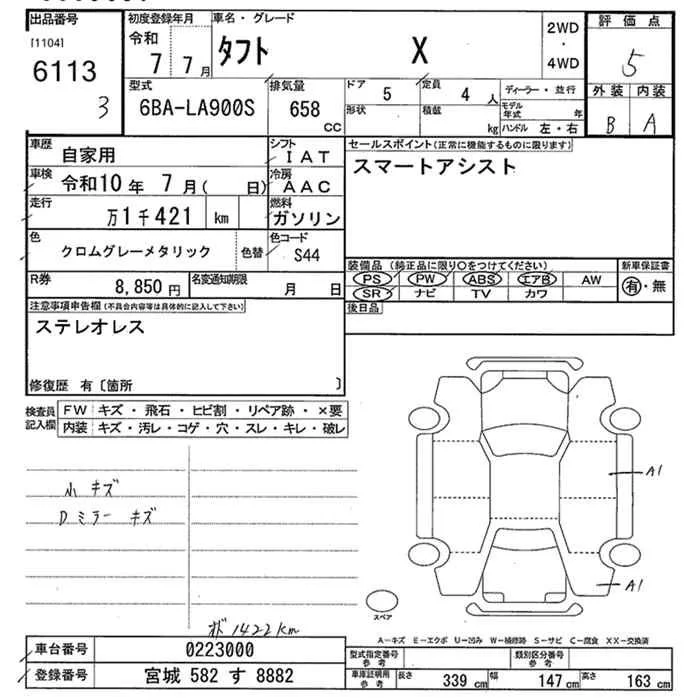 出品番号
[1104]
6113
3
初度登録年月
令和
7 7月
車名・グレード
タフト X
2WD
・
4WD
評価点
5
外装 内装
B A
型式
6BA-LA900S
排気量
658
CC
ドア
5
定員
4 人
形状
積載
kg
ディーラー・並行
モデル年式 年
ハンドル 左・右
車歴
自家用
シフト
IAT
車検 令和10年 7月( 日)
冷房
AAC
走行
万1千421 km
燃料
ガソリン
色
クロムグレーメタリック
色替
色コード
S44
R券
8,850円
名変通知期限
月 日
セールスポイント(正常に機能するものに限ります)
スマートアシスト
装備品 (純正品に限り○をつけてください)
PS PW ABS エアB AW
SR ナビ TV カワ
新車保証書
有・無
後日品
注意事項申告欄(不具合内容等は具体的に記入して下さい)
ステレオレス
修復歴 有〔箇所 〕
検査員記入欄
FW キズ・飛石・ヒビ割・リペア跡・×要
内装 キズ・汚レ・コゲ・穴・スレ・キレ・破レ
小 キズ
Dミラー キズ
A1
A1
スペア
オド 1422km
A-キズ E-エクボ U-凹み W-補修跡 S-サビ C-腐食 XX-交換済
車台番号
0223000
登録番号
宮城 582 す 8882
型式指定番号
参考
類別区分番号
参考
車庫証明用
参考
長さ
339 cm
幅
147 cm
高さ
163 cm